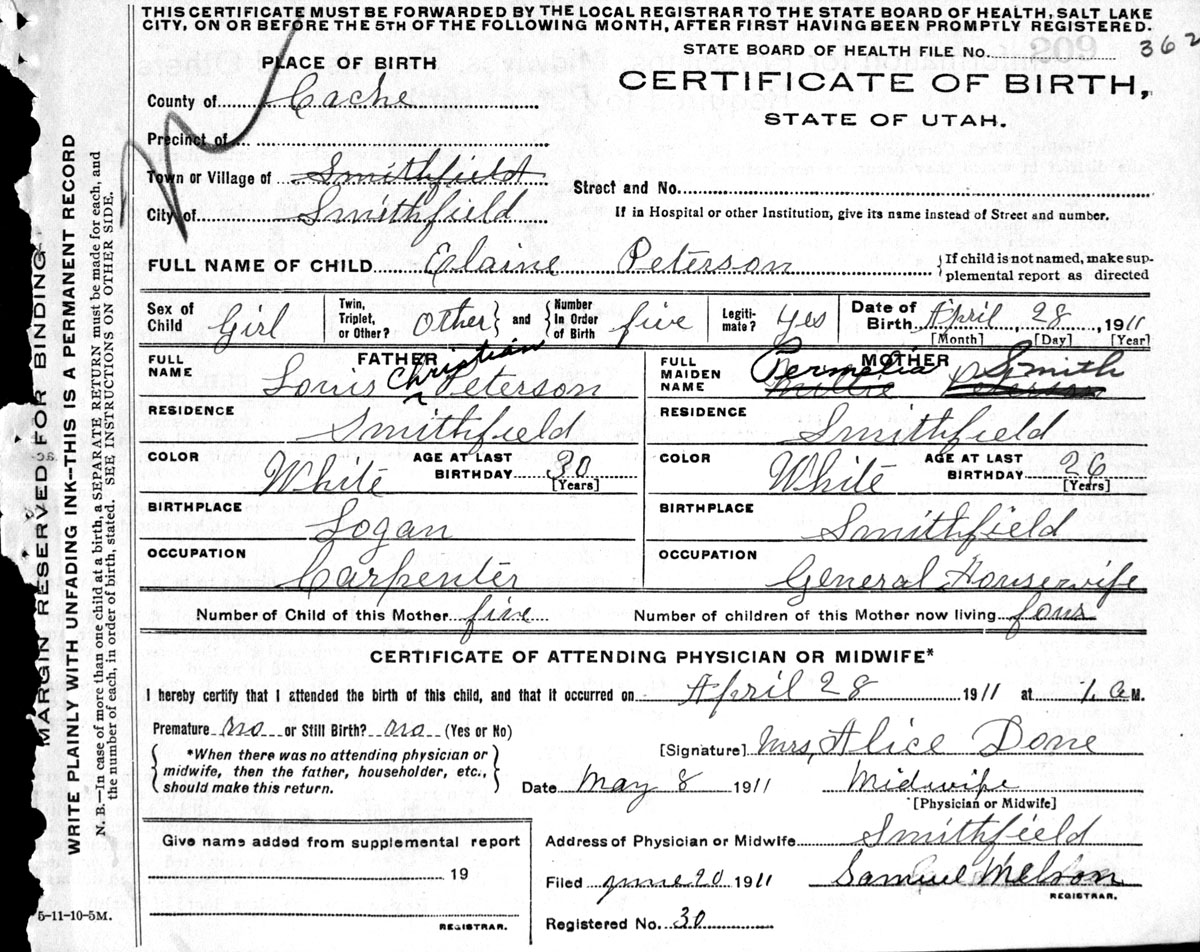 THIS CERTIFICATE MUST BE FORWARDED BY THE LOCAL REGISTRAR TO THE STATE BOARD OF HEALTH, SALT LAKE
CITY, ON OR BEFORE THE 5TH OF THE FOLLOWING MONTH, AFTER FIRST HAVING BEEN PROMPTLY REGISTERED.
STATE BOARD OF HEALTH FILE No. 362
PLACE OF BIRTH
CERTIFICATE OF BIRTH,
STATE OF UTAH.
County of Cache
Precinct of
Town or Village of Smithfield
Street and No.
City of Smithfield
If in Hospital or other Institution, give its name instead of Street and number.
FULL NAME OF CHILD Elaine Peterson
{If child is not named, make sup-
plemental report as directed
Sex of Child Girl
Twin, Triplet, or Other? Other} and {Number In Order of Birth five
Legiti-mate? yes
Date of Birth April, 28, 1911
[Month] [Day] [Year]
FATHER
FULL NAME Louis Christian Peterson
MOTHER
FULL MAIDEN NAME Permelia Smith
RESIDENCE Smithfield
RESIDENCE Smithfield
COLOR White AGE AT LAST BIRTHDAY 30 [Years]
COLOR White AGE AT LAST BIRTHDAY 26 [Years]
BIRTHPLACE Logan
BIRTHPLACE Smithfield
OCCUPATION Carpenter
OCCUPATION General Housewife
Number of Child of this Mother five
Number of children of this Mother now living four
CERTIFICATE OF ATTENDING PHYSICIAN OR MIDWIFE*
I hereby certify that I attended the birth of this child, and that it occurred on April 28 1911 at 1, a M.
Premature no or Still Birth? no (Yes or No)
{*When there was no attending physician or
midwife, then the father, householder, etc.,
should make this return.}
[Signature] Mrs, Alice Done
Date May 8 1911 Midwife
[Physician or Midwife]
Give name added from supplemental report
19
REGISTRAR.
Address of Physician or Midwife Smithfield
Filed June 20 1911 Samuel Nelson
REGISTRAR.
Registered No. 30
5-11-10-5M.
MARGIN RESERVED FOR BINDING
WRITE PLAINLY WITH UNFADING INK--THIS IS A PERMANENT RECORD
N. B.—In case of more than one child at a birth, a SEPARATE RETURN must be made for each, and
the number of each, in order of birth, stated. SEE INSTRUCTIONS ON OTHER SIDE.